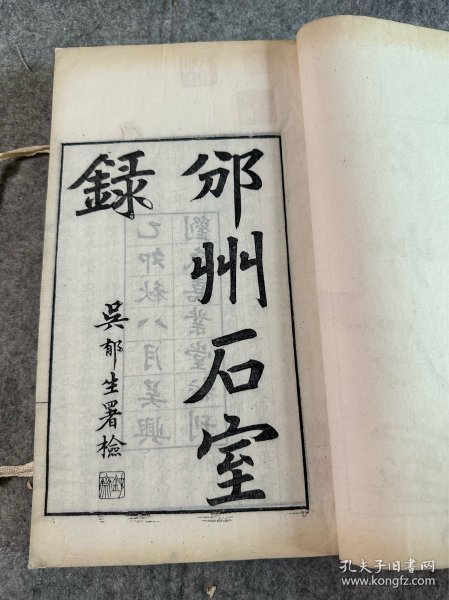 邠州石室
錄
吳郁生署檢
乙卯秋八月吳興
孔夫子旧书网
www.kongfz.com